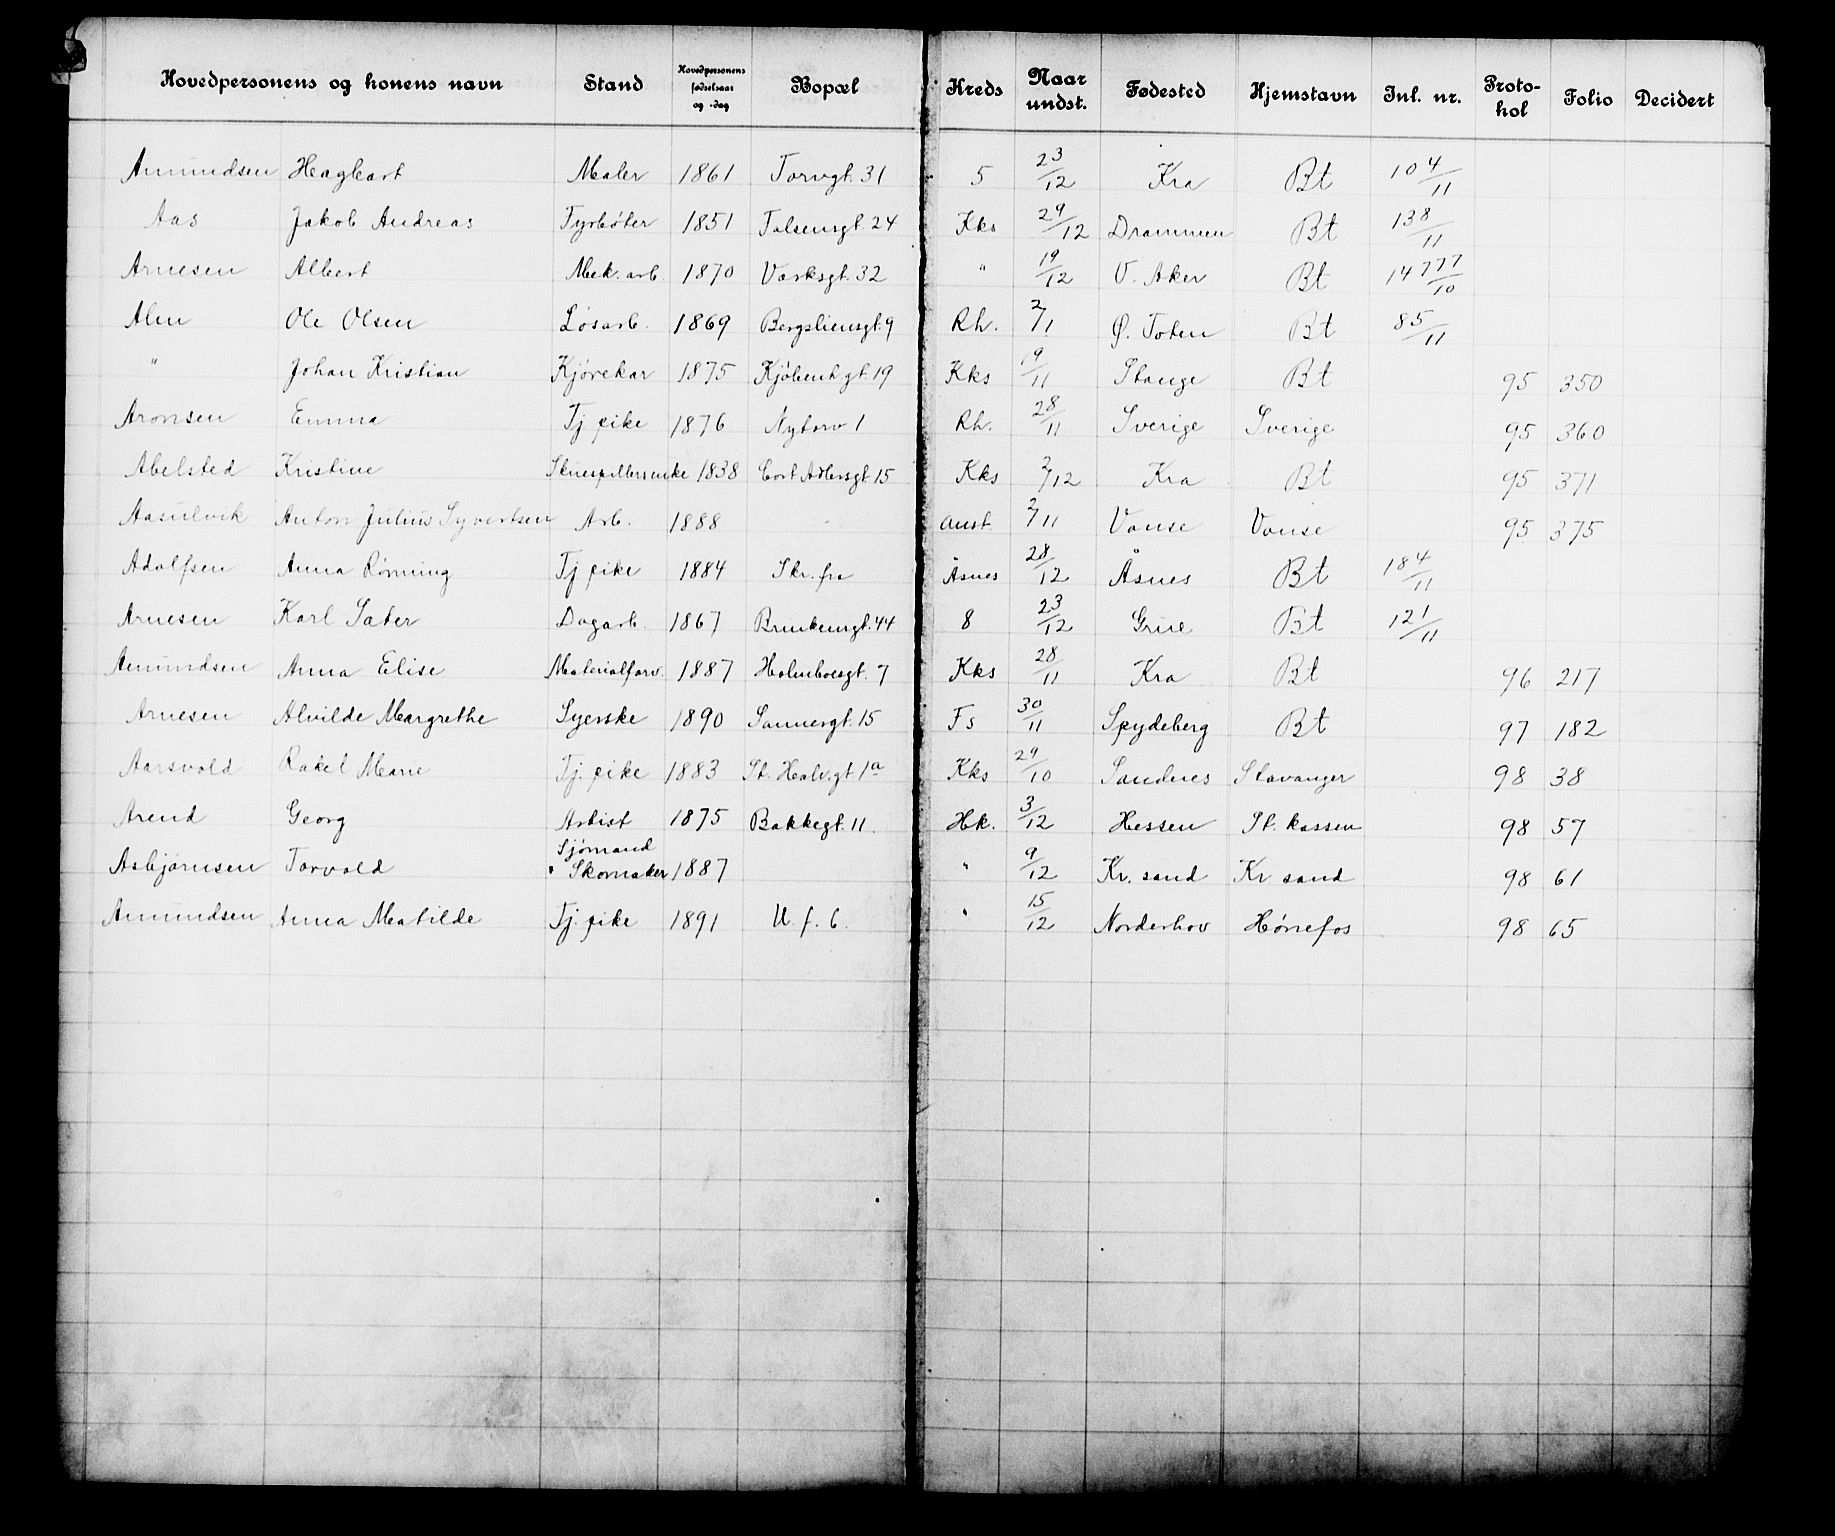 Hovedpersonens og konens navn Stand Hovedpersonens fødselsaar og -dag Bopæl Kreds Naar undst. Fødested Hjemstavn Inl. nr. Proto-kol Folio Decidert
Amundsen Hagbart Maler 1861 Torvgt. 31 5 23/12 Kra Bt 104/11
Aas Jakob Andreas Fyrbøter 1851 Falsensgt. 24 Kks 29/12 Drammen Bt 138/11
Arnesen Albert Mek. arb. 1870 Værksgt. 32 " 19/12 V. Aker Bt 14777/10
Alm Ole Olsen Løsarb. 1869 Bergsliensgt. 9 Rh. 2/11 Ø. Toten Bt 85/11
" Johan Kristian Kjørekar 1875 Kjøbenh.gt. 19 Kks 19/11 Stange Bt 95 350
Aronsen Emma Tj pike 1876 Nytorv 1 Rh. 28/11 Sverige Sverige 95 360
Abelsted Kristine Skuespillerenke 1838 Cort Adlersgt 15 Kks 2/12 Kra Bt 95 371
Aasulvik Anton Julius Syvertsen Arb. 1888 Aust. 2/11 Vanse Vanse 95 375
Adolfsen Anna Rønning Tj pike 1884 Skr. fra Åsnes 28/12 Åsnes Bt 184/11
Arnesen Karl Sater Dagarb. 1867 Brinkensgt. 44 8 23/12 Grue Bt 121/11
Amundsen Anna Elise Materialforv. 1887 Holmboesgt. 7 Kks 28/11 Kra Bt 96 217
Arnesen Alvilde Margrethe Syerske 1890 Sannergt. 15 Fs 30/11 Spydeberg Bt 97 182
Aarsvold Rakel Marie Tj. pike 1883 St. Halv.gt. 1a Kks 29/10 Sandnes Stavanger 98 38
Arend Georg Artist 1875 Bakkegt. 11. Hk. 3/12 Hessen St. kassen 98 57
Asbjørnsen Torvald Sjømand " Skomaker 1887 " 9/12 Kr. sand Kr sand 98 61
Amundsen Anna Matilde Tj. pike 1891 U. f. b. " 15/12 Norderhov Hønefos 98 65